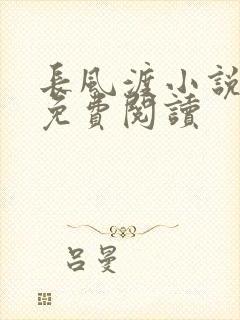 長風渡小說
免費閱讀
呂曼